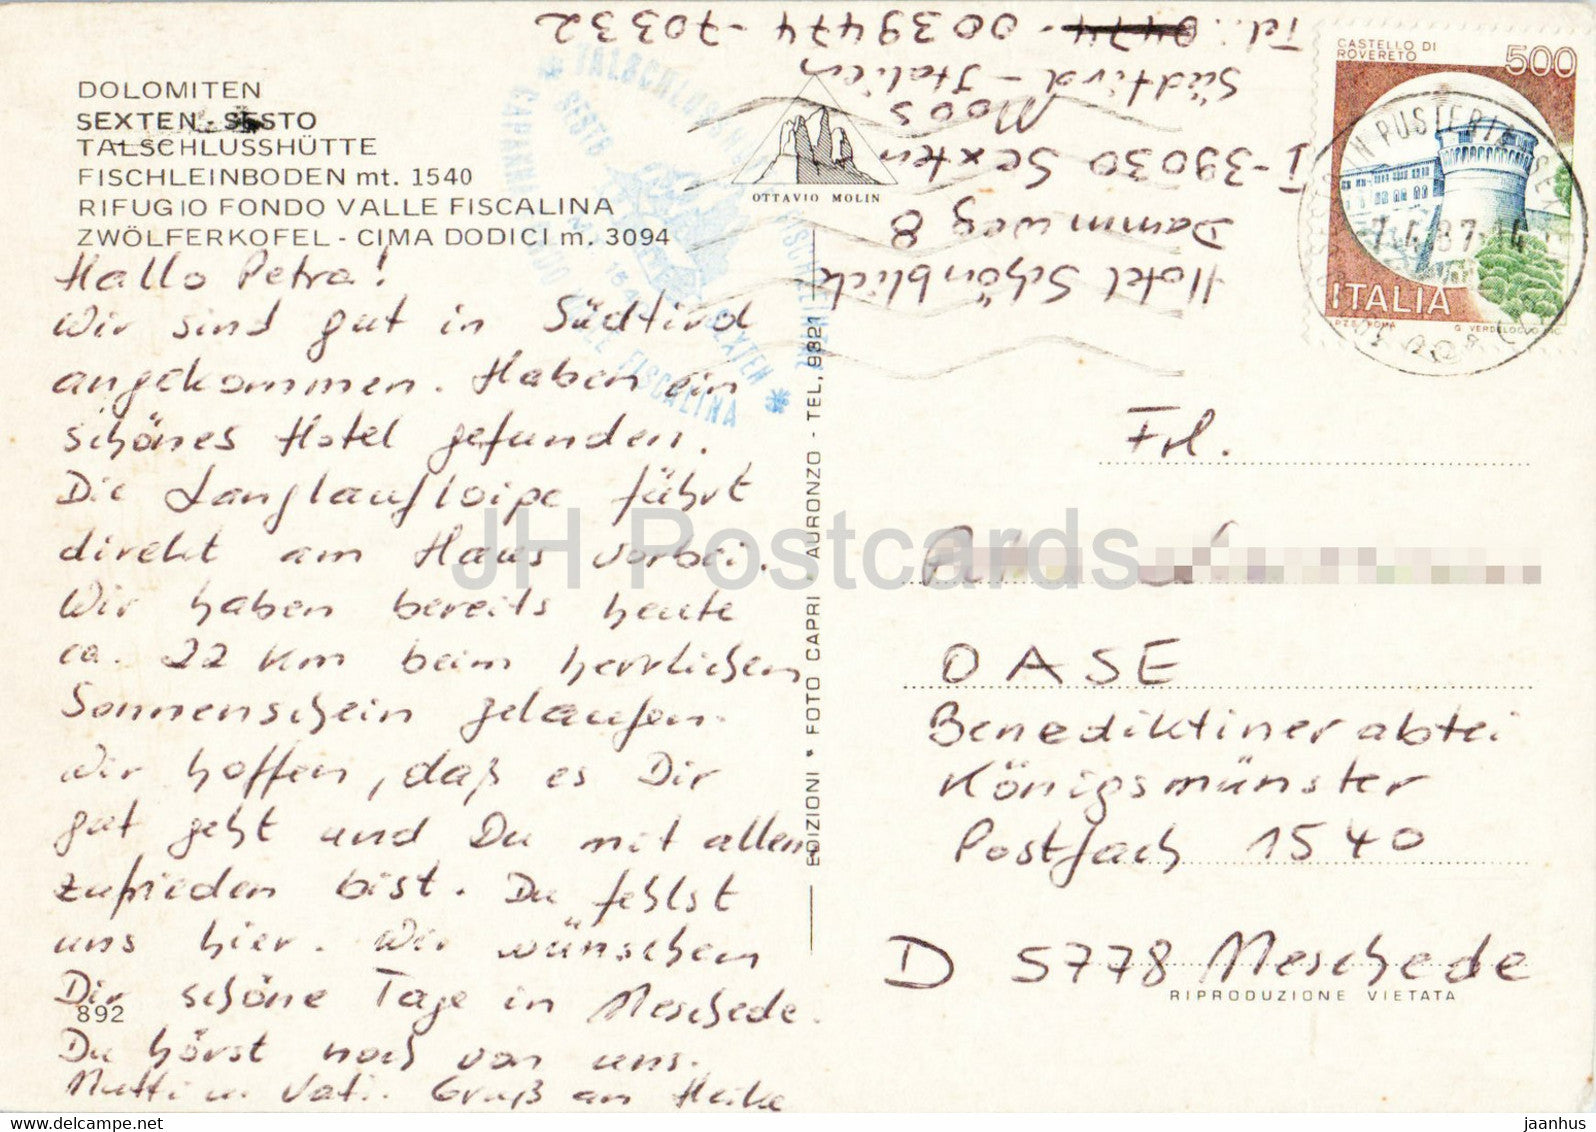 DOLOMITEN
SEXTEN - SESTO
TALSCHLUSSHÜTTE
FISCHLEINBODEN mt. 1540
RIFUGIO FONDO VALLE FISCALINA
ZWÖLFERKOFEL - CIMA DODICI m. 3094
Hallo Petra!
Wir sind gut in Südtirol
angekommen. Haben ein
schönes Hotel gefunden.
Die Langlaufloipe führt
direkt am Haus vorbei.
Wir haben bereits heute
ca. 22 Km beim herrlichen
Sonnenschein gelaufen.
Wir hoffen, daß es Dir
gut geht und Du mit allem
zufrieden bist. Du fehlst
uns hier. Wir wünschen
Dir schöne Tage in Meschede.
892
Du hörst noch von uns.
Mutti u. Vati. Gruß an Heike
Hotel Schönblick
Dammweg 8
I-39030 Sexten
Moos
Südtirol - Italien
Tel.: 0474- 0039474-70332
OTTAVIO MOLIN
EDIZIONI * FOTO CAPRI - AURONZO - TEL. 9821
TALSCHLUSS
FISCHLEINTAL
SESTO
SEXTEN
VALLE FISCALINA
CASTELLO DI
ROVERETO
500
ITALIA
I.P.Z.S. ROMA
G. VERDELOCCO INC.
IN PUSTERIA
Frl.
OASE
Benediktinerabtei
Königsmünster
Postfach 1540
D 5778 Meschede
RIPRODUZIONE VIETATA
JH Postcards
www.delcampe.net
jaanhus